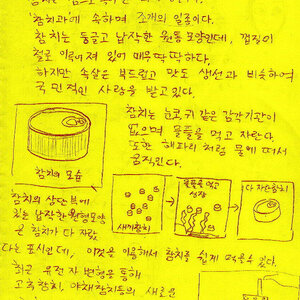 참치과에 속하며 조개의 일종이다.
참치는 둥글고 납작한 원통모양인데, 껍질이
철로 이루어져 있어 매우 딱딱하다.
하지만 속살은 부드럽고 맛도 생선과 비슷하여
국민적인 사랑을 받고있다.
참치는 눈코귀 같은 감각기관이
없으며 물풀을 먹고 자란다.
또한 해파리처럼 물에 떠서
움직인다.
참치의 모습
새끼참치
물풀을 먹고
성장
다 자란참치
참치의 상단부에
있는 납작한 원형모양
은 참치가 다 자랐
다는 표시인데, 이것을 이용해서 참치를 쉽게 먹을수 있다.
최근 유전자 변형을 통해
고추참치, 야채참치등의 새로운